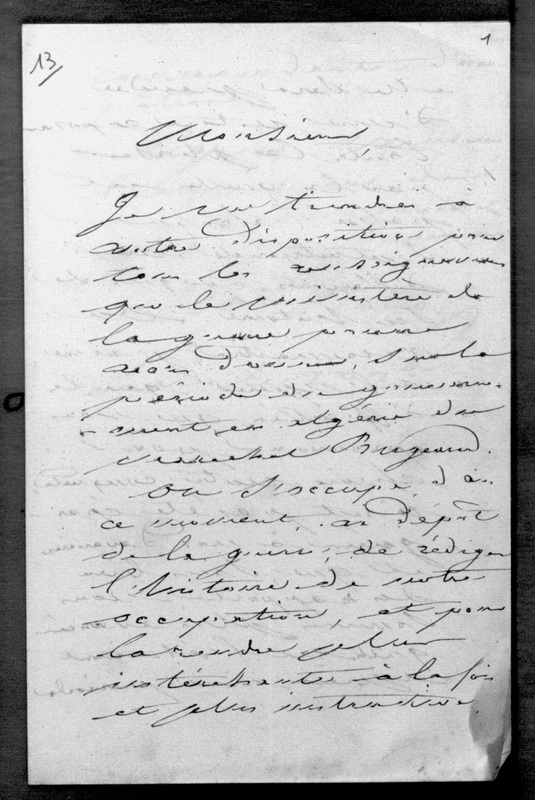 13
1
Monsieur,
Je me tiendrai à
votre disposition pour
tous les renseignemens
que le ministère de
la guerre pourra
vous donner, sur la
période du gouverne-
-ment, en algérie du
Maréchal Bugeaud.
On s'occupe, d
ce moment, au dépôt
de la guerre, de rédiger
l'histoire de notre
occupation, et pour
la rendre plus
intéressante à la fois
et plus instructive